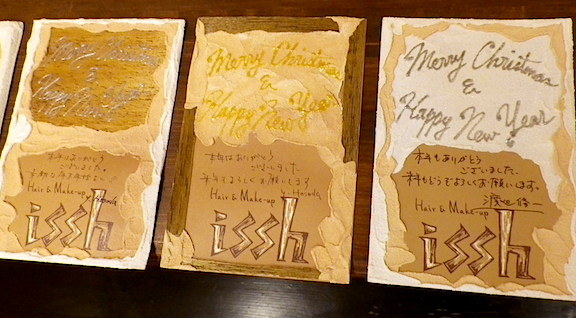 Merry Christmas
&
Happy New Year
本年はありがとう
ございました。
Hair & Make-up
issh
Merry Christmas
&
Happy New Year
本年はありがとう
ございました
来年もよろしくお願いします
Hair & Make-up
issh
Merry Christmas
&
Happy New Year
本年もありがとう
ございました。
来年もどうぞよろしくお願いします。
Hair & Make-up
issh